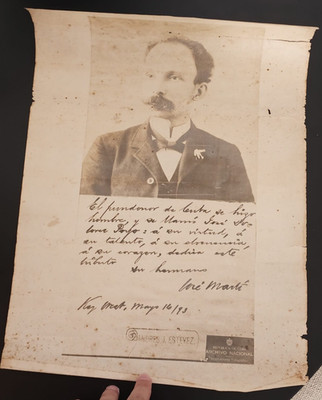 El pundonor de Cuba se hizo
hombre, y se llamó José Do-
lores Poyo: á su virtud, á
su talento, á su elocuencia,
á su corazon, dedica este
tributo
su hermano
José Martí
Key West, Mayo 16/93
ESTEVEZ
ARCHIVO NACIONAL